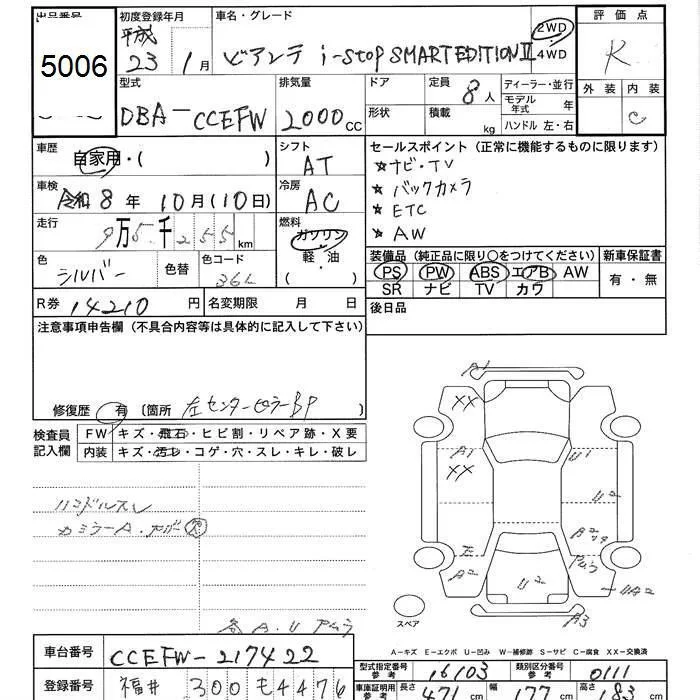 出品番号
5006
初度登録年月
平成
23 1 月
車名・グレード
ビアンテ i-stop SMART EDITION II
2WD
4WD
評価点
R
外装 内装
C
型式
DBA-CCEFW
排気量
2000 cc
ドア
形状
定員
8 人
積載
kg
ディーラー・並行
モデル年式 年
ハンドル 左・右
車歴
自家用・( )
シフト
AT
セールスポイント (正常に機能するものに限ります)
★ナビ・TV
★バックカメラ
★ETC
★AW
車検
令和 8 年 10 月 (10 日)
冷房
AC
走行
9 万 5 千 2 5 5 km
燃料
ガソリン
軽・油
( )
色
シルバー
色替
色コード
装備品 (純正品に限り〇をつけてください)
PS PW ABS エアB AW
SR ナビ TV カワ
新車保証書
有・無
R券 14210 円
名変期限 月 日
後日品
注意事項申告欄 (不具合内容等は具体的に記入して下さい)
修復歴 有 〔箇所 左センターピラーBP 〕
検査員
記入欄
FW キズ・飛石・ヒビ割・リペア跡・X要
内装 キズ・汚レ・コゲ・穴・スレ・キレ・破レ
ハンドルスレ
A1
XX
A1
XX
U1
U2
A2
U2
A3
スペア
A-キズ E-エクボ U-凹み W-補修跡 S-サビ C-腐食 XX-交換済
車台番号
CCEFW-217422
型式指定番号
参考
16103
類別区分番号
参考
0111
登録番号
福井 300 も 4476
車庫証明用
参考
長さ 471 cm
幅 177 cm
高さ 183 cm